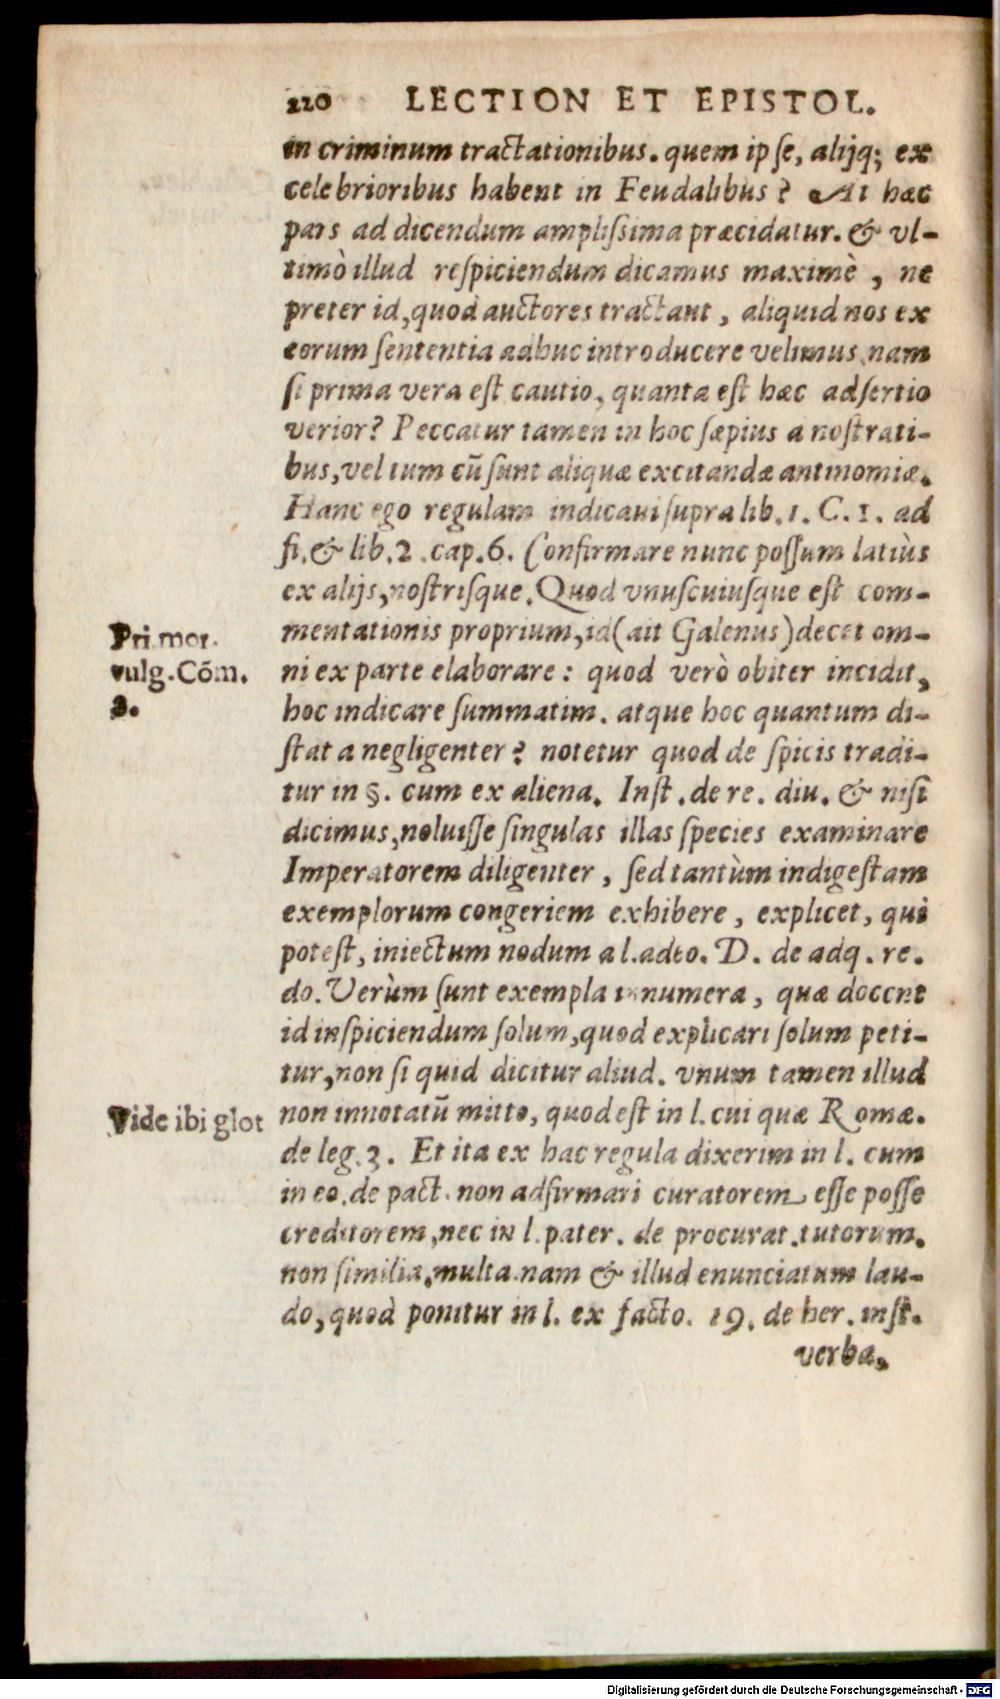 220 LECTION ET EPISTOL.
in criminum tractationibus. quem ipse, alijq; ex
celebrioribus habent in Feudalibus? At hæc
pars ad dicendum amplissima præcidatur. & vl-
timò illud respiciendum dicamus maximè, ne
preter id, quod auctores tractant, aliquid nos ex
eorum sententia adhuc introducere velimus. nam
si prima vera est cautio, quanta est hæc adsertio
verior? Peccatur tamen in hoc sæpius a nostrati-
bus, vel tum cũ sunt aliquæ excitandæ antinomiæ.
Hanc ego regulam indicaui supra lib. 1. C. 1. ad
fi. & lib. 2. cap. 6. Confirmare nunc possum latiùs
ex alijs, nostrisque. Quod vnuscuiusque est com-
Pri. mor.
vulg. Cõm.
2.
mentationis proprium, id (ait Galenus) decet om-
ni ex parte elaborare: quod verò obiter incidit,
hoc indicare summatim. atque hoc quantum di-
stat a negligenter? notetur quod de spicis tradi-
tur in §. cum ex aliena. Inst. de re. diu. & nisi
dicimus, noluisse singulas illas species examinare
Imperatorem diligenter, sed tantùm indigestam
exemplorum congeriem exhibere, explicet, qui
potest, iniectum nodum a l. adeo. D. de adq. re.
do. Verùm sunt exempla innumera, quæ docent
id inspiciendum solum, quod explicari solum peti-
tur, non si quid dicitur aliud. vnum tamen illud
Vide ibi glot
non innotatũ mitto, quod est in l. cui quæ Romæ.
de leg. 3. Et ita ex hac regula dixerim in l. cum
in eo. de pact. non adfirmari curatorem esse posse
creditorem, nec in l. pater. de procurat. tutorum.
non similia. multa. nam & illud enunciatum lau-
do, quod ponitur in l. ex facto. 19. de her. inst.
verba,
Digitalisierung gefördert durch die Deutsche Forschungsgemeinschaft - DFG